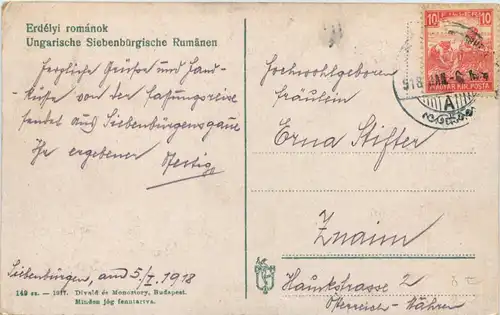 Erdélyi románok
Ungarische Siebenbürgische Rumänen
Herzliche Grüsse und Hand-
küsse von der Fassungsreise
sendet aus Siebenbürgensgaue
Ihr ergebener
Siebenbürgen, am 5/I. 1918
149 sz. — 1917. Divald és Monostory, Budapest.
Minden jóg fenntartva.
10
MAGYAR KIR. POSTA
918 JAN.
A
Hochwohlgeboren
Fräulein
Erna Stifter
Znaim
Hauptstrasse 2
Österreich - Mähren